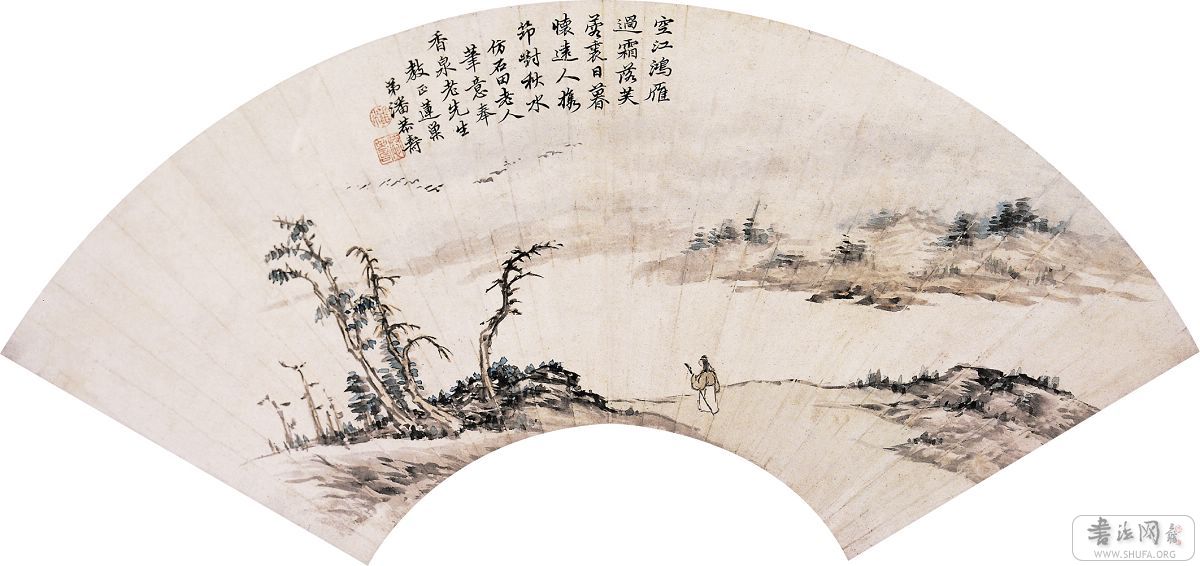 空江鴻雁
過霜落芙
蓉裏日暮
懷遠人携
筇對秋水
仿石田老人
筆意奉
香泉老先生
教正蓮巢
弟潘恭壽
書法网
WWW.SHUFA.ORG